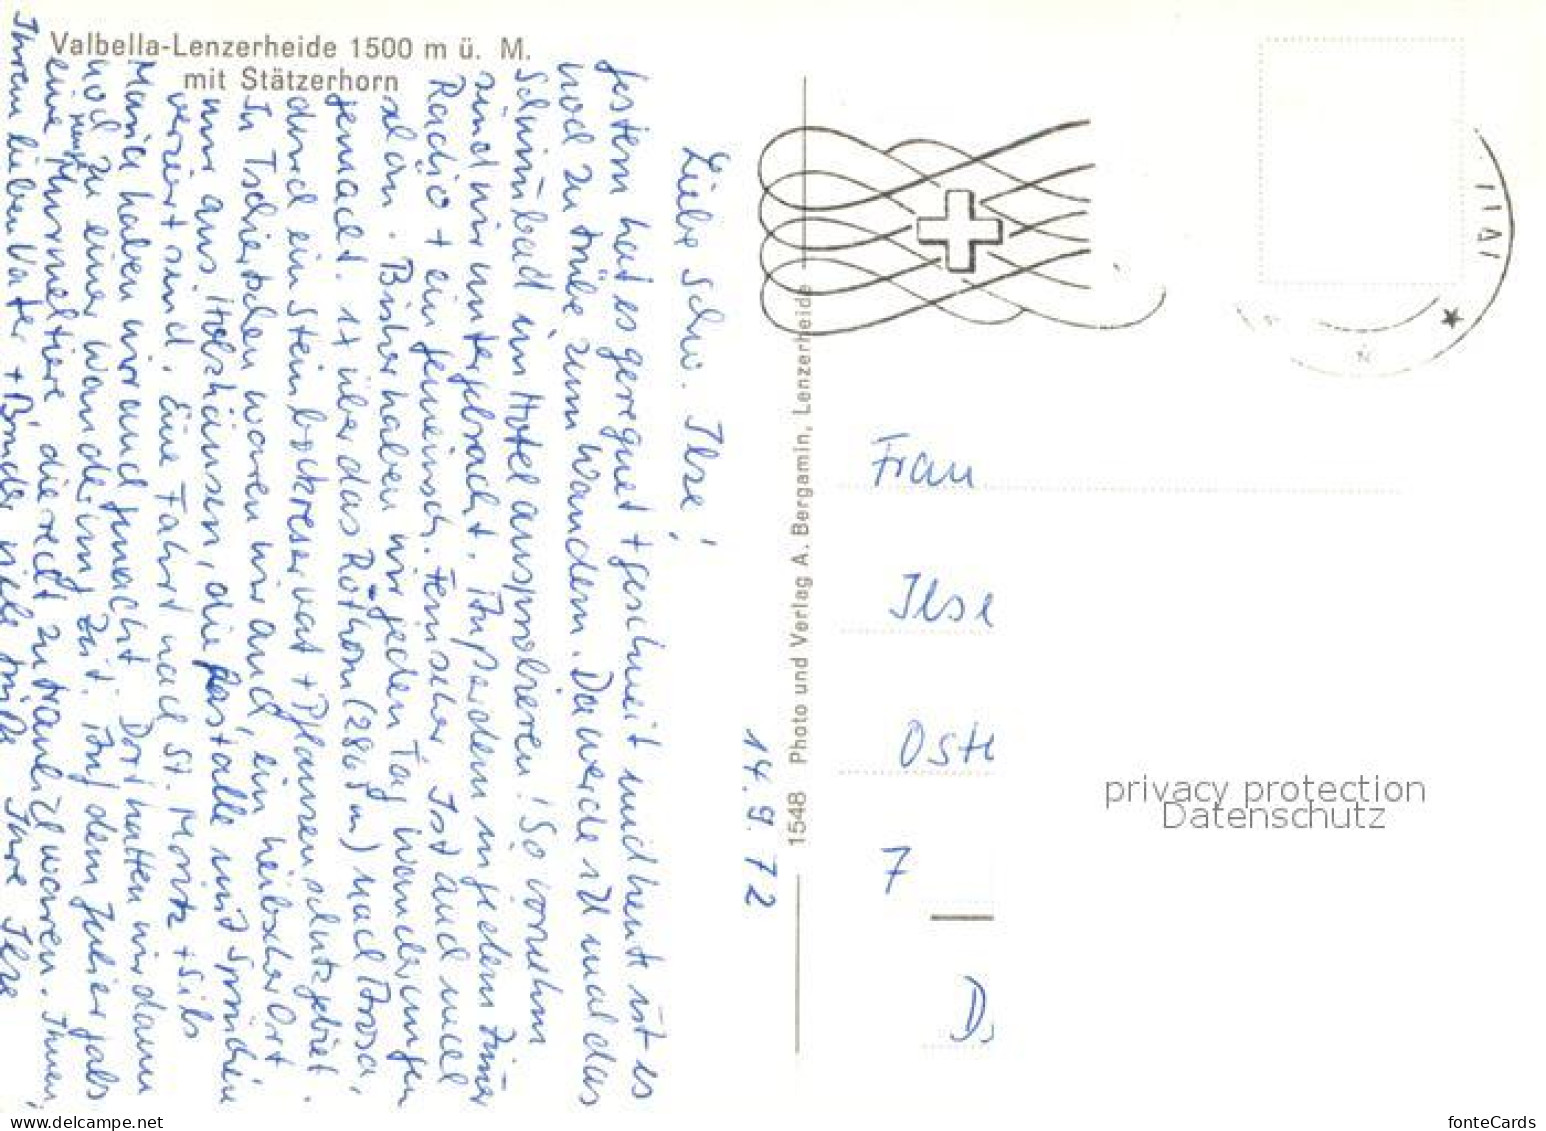 Valbella-Lenzerheide 1500 m ü. M.
mit Stätzerhorn
14.9.72
Liebe Schw. Ilse!
Gestern hat es geregnet + geschneit und heute ist es
noch zu trübe zum Wandern. Da werde ich mal das
Schwimmbad im Hotel ausprobieren! So vornehm
sind wir untergebracht. Außerdem in jedem Zimmer
Radio + ein gemeinsch. Fernseher. Ist auch viel
. Bisher haben wir jeden Tag Wanderungen
gemacht. 1x über das Rothorn (2865 m) nach Arosa,
durch ein Steinbockreservat + Pflanzenschutzgebiet.
In Tschiertschen waren wir auch, ein hübscher Ort
nur aus Holzhäusern, die fast alle mit Sprüchen
verziert sind. Eine Fahrt nach St. Moritz + Sils
Maria haben wir auch gemacht. Dort hatten wir dann
noch zu einer Wanderung Zeit. Auf dem Julierpass
eine Murmeltiere, die recht zutraulich waren. Ihnen,
Ihrem lieben Vater + Bruder viele Grüße Ihre Ilse
1548 Photo und Verlag A. Bergamin, Lenzerheide
Frau
Ilse
Oste
7
D
privacy protection
Datenschutz
www.delcampe.net
fonteCards